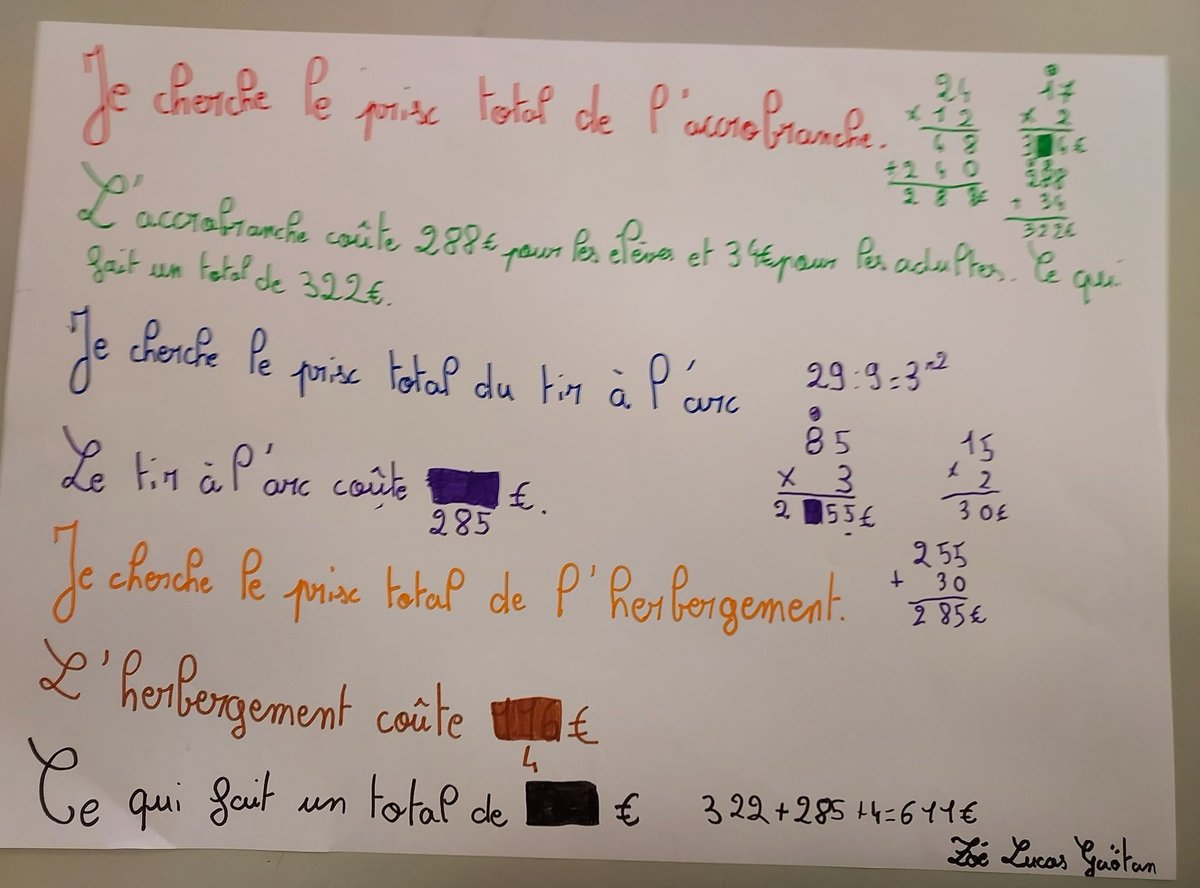 Je cherche le prix total de l'accrobranche.
24
x 12
48
+240
288€
17
x 2
34€
288
+ 34
322€
L'accrobranche coûte 288€ pour les elèves et 34€ pour les adultes. Ce qui
fait un total de 322€.
Je cherche le prix total du tir à l'arc
29:9=3 r2
Le tir à l'arc coûte €.
285
85
x 3
255€
15
x 2
30€
255
+ 30
285€
Je cherche le prix total de l'herbergement.
L'herbergement coûte €
4
Ce qui fait un total de € 322+285+4=611€
Zoé Lucas Gaëtan